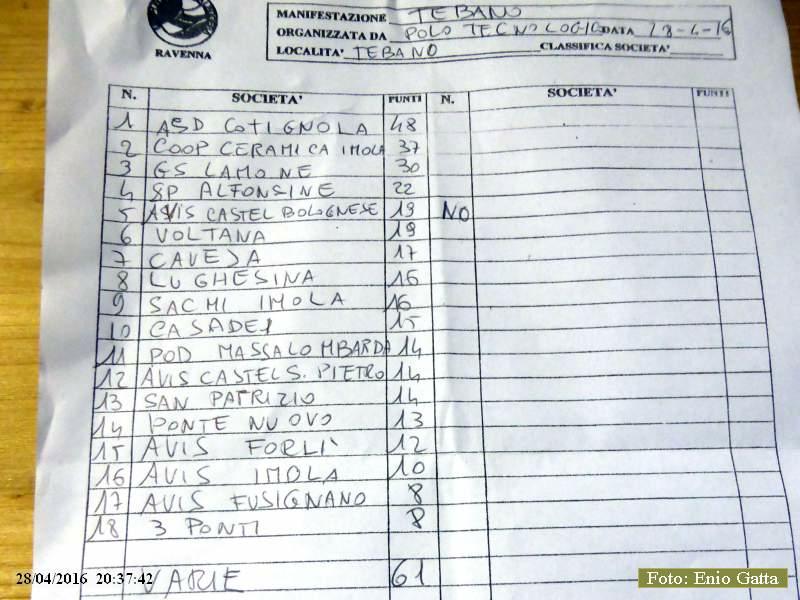 RAVENNA
MANIFESTAZIONE TEBANO
ORGANIZZATA DA POLO TECNOLOGICO DATA 28-4-16
LOCALITA' TEBANO CLASSIFICA SOCIETA'
N. SOCIETA' PUNTI N. SOCIETA' PUNTI
1 ASD COTIGNOLA 48
2 COOP CERAMICA IMOLA 37
3 GS LAMONE 30
4 GP ALFONSINE 22
5 AVIS CASTEL BOLOGNESE 19 NO
6 VOLTANA 19
7 CAVEJA 17
8 LUGHESINA 16
9 SACMI IMOLA 16
10 CASADEI 15
11 POD MASSALOMBARDA 14
12 AVIS CASTEL S. PIETRO 14
13 SAN PATRIZIO 14
14 PONTE NUOVO 13
15 AVIS FORLI' 12
16 AVIS IMOLA 10
17 AVIS FUSIGNANO 8
18 3 PONTI 8
VARIE 61
28/04/2016 20:37:42
Foto: Enio Gatta